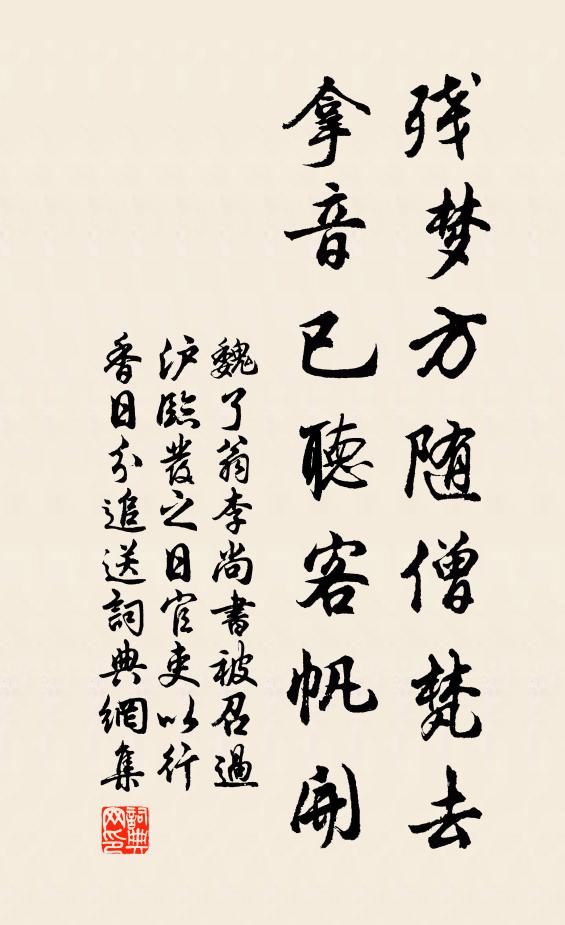 残梦方随僧梵去
拿音已聽客帆開
魏了翁李尚書被召過
泸臨發之日官吏以行
香日分追送詞典網集
詞典網印